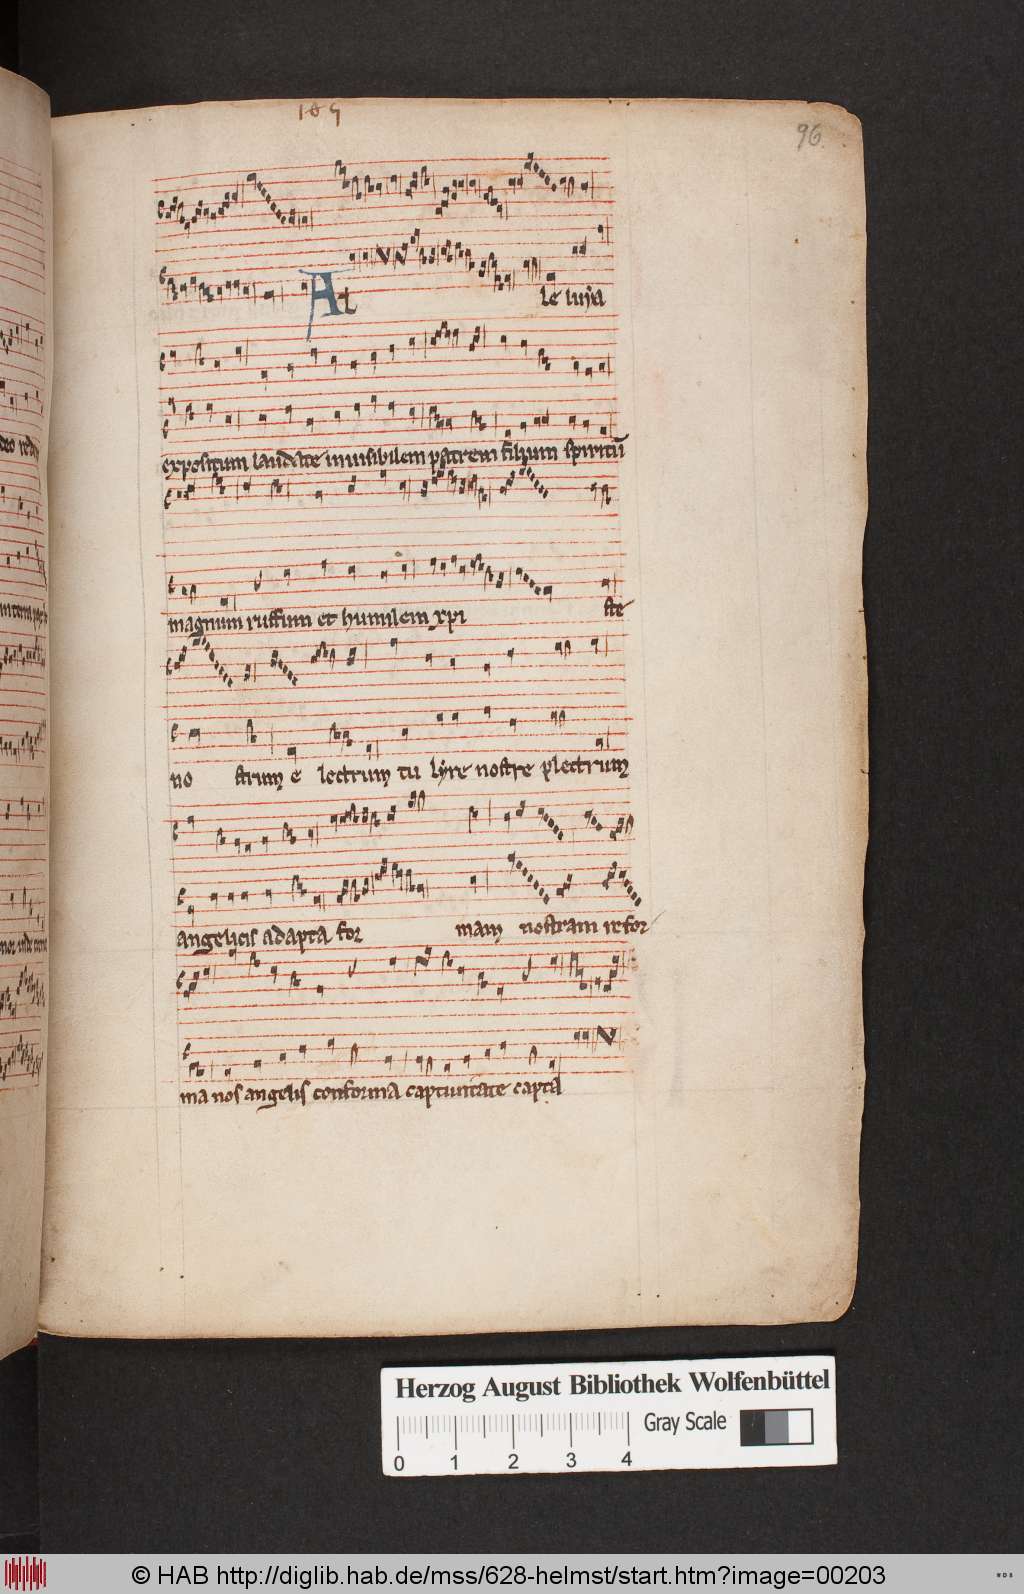 105
96
Al le luya
expositum laudate invisibilem patrem filium spiritū
magnum ruffum et humilem xpi ste
no strum e lectrum tu lyre nostre plectrum
angelicis adapta for mam nostram refor
ma nos angelis conforma captivitate capta
Herzog August Bibliothek Wolfenbüttel
Gray Scale
0 1 2 3 4
© HAB http://diglib.hab.de/mss/628-helmst/start.htm?image=00203